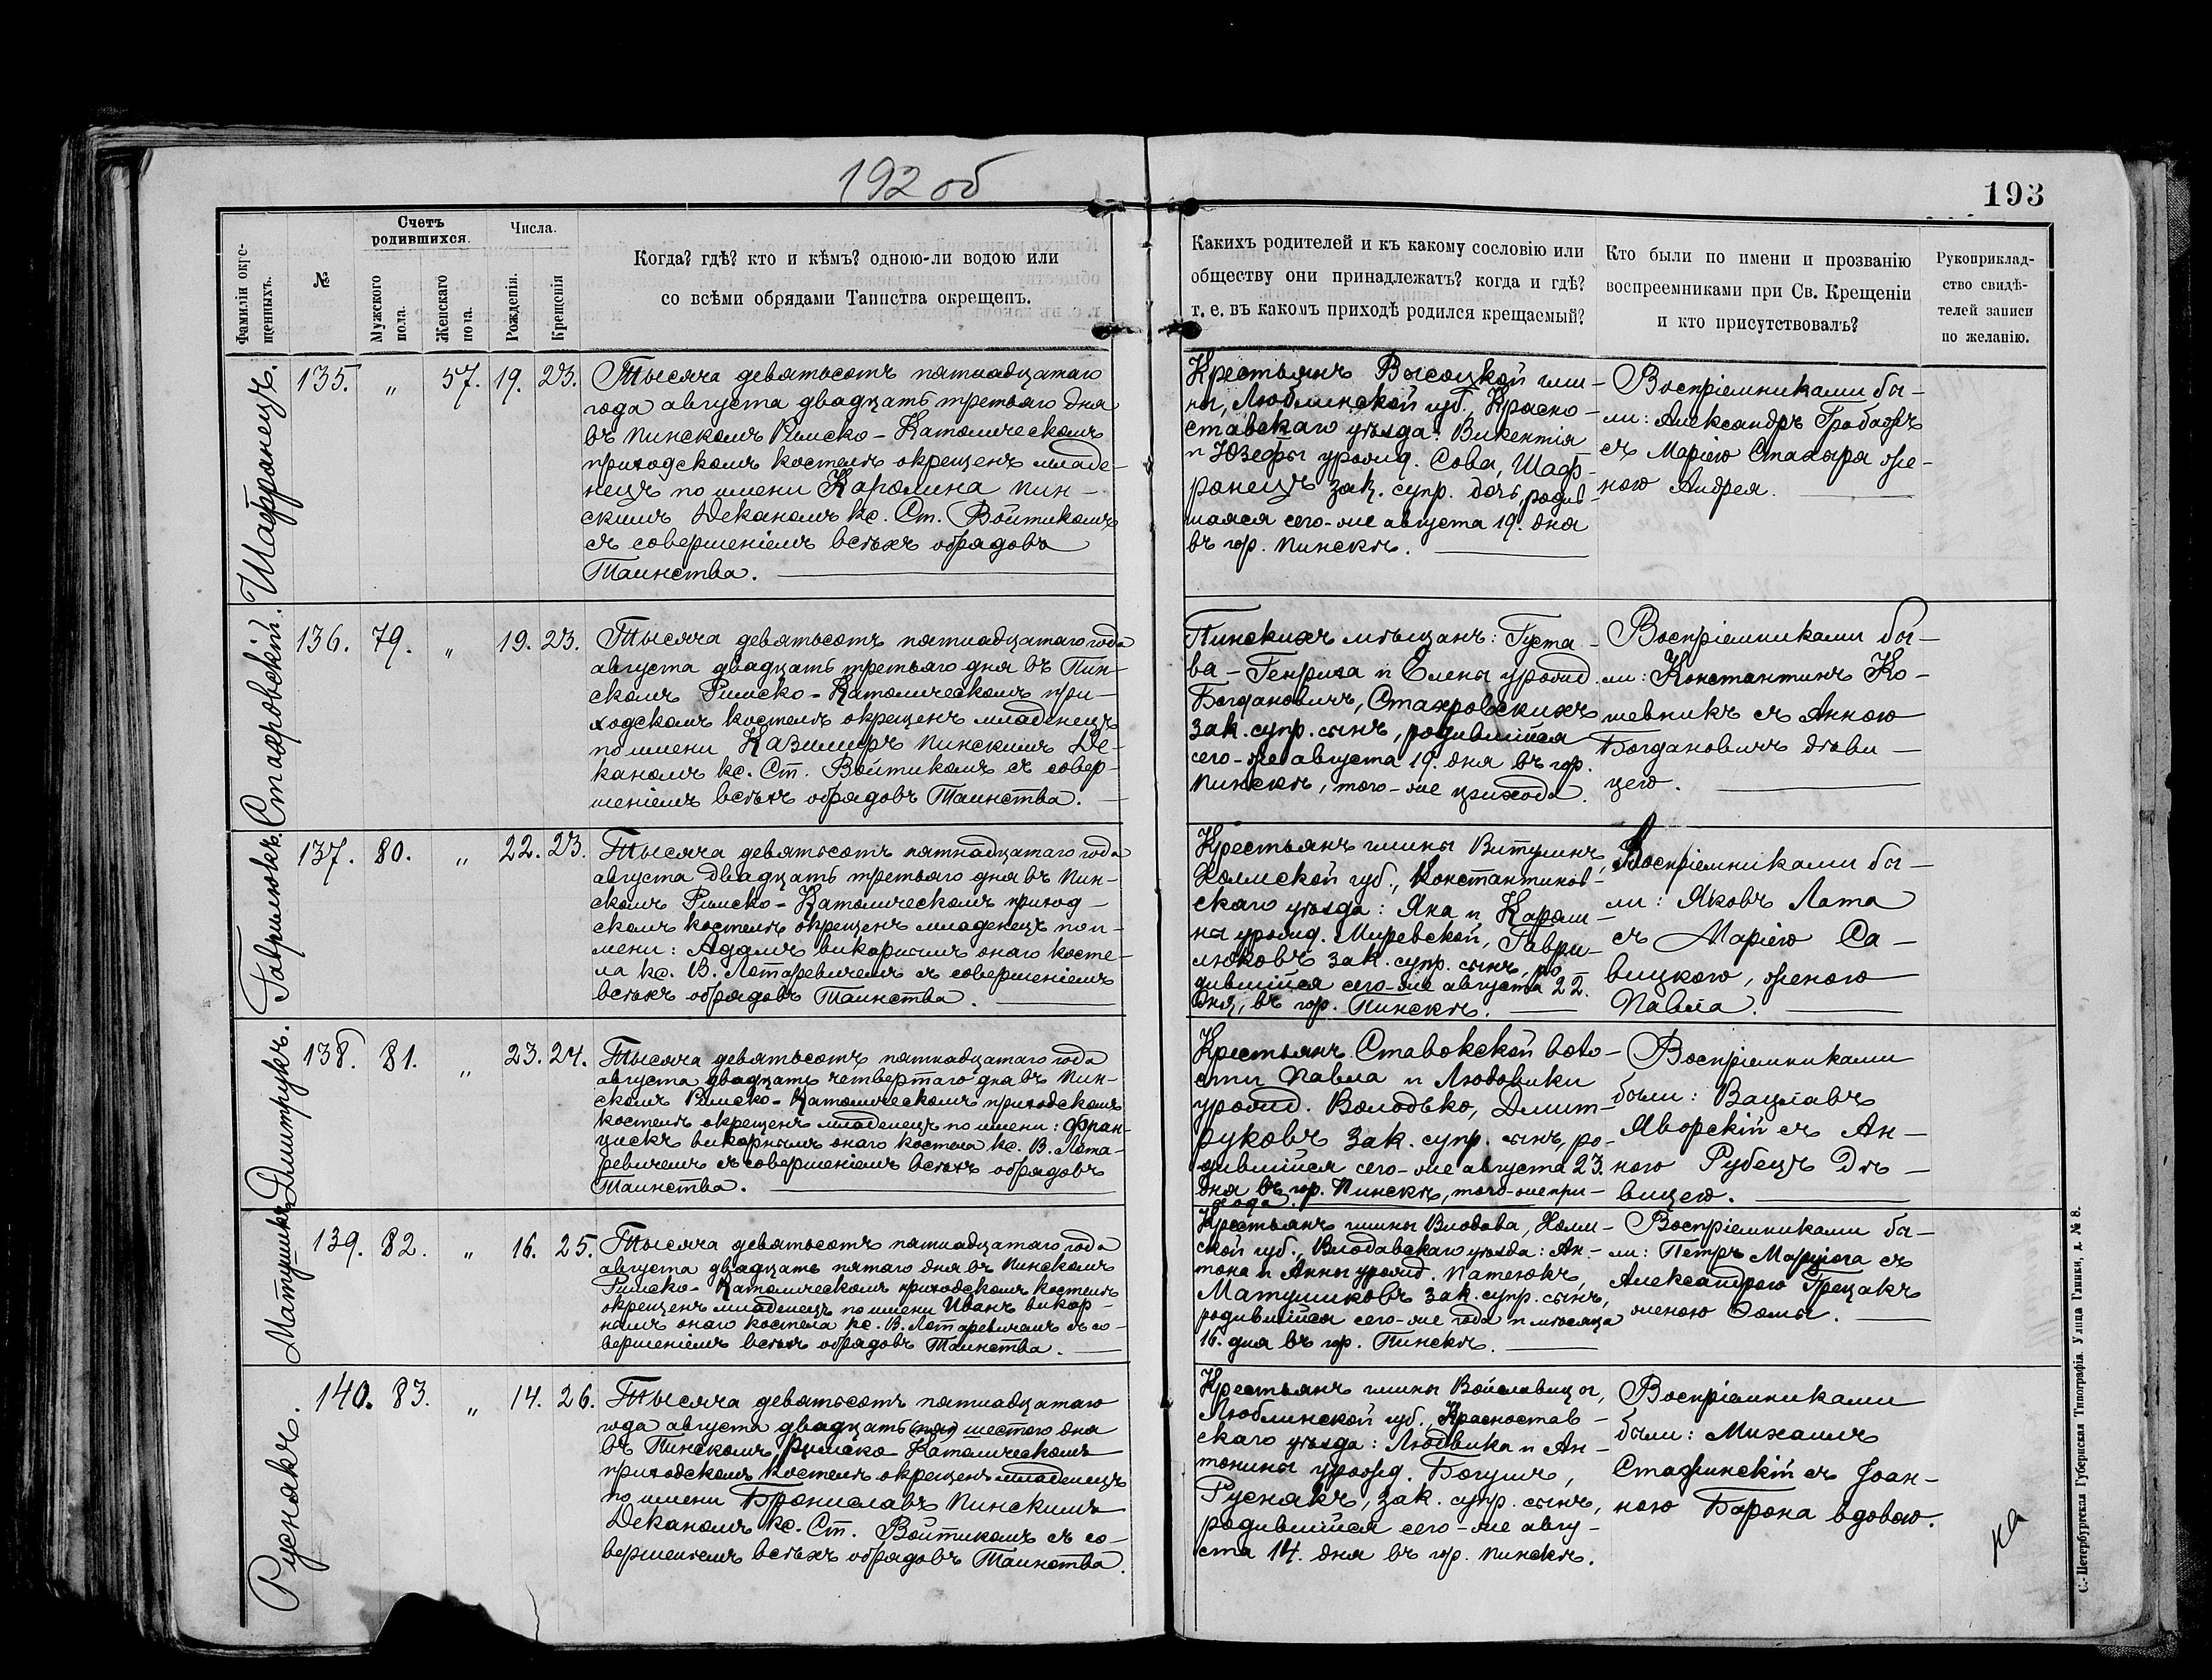 192 об
193
Фамиліи окре-
щенныхъ.
№
Счетъ
родившихся.
Мужского
пола.
Женскаго
пола.
Числа.
Рожденія.
Крещенія
Когда? гдѣ? кто и кѣмъ? одною-ли водою или
со всѣми обрядами Таинства окрещенъ.
Какихъ родителей и къ какому сословію или
обществу они принадлежатъ? когда и гдѣ?
т. е. въ какомъ приходѣ родился крещаемый?
Кто были по имени и прозванію
воспреемниками при Св. Крещеніи
и кто присутствовалъ?
Рукоприклад-
ство свидѣ-
телей записи
по желанію.
Шафранецъ.
135. " 57. 19. 23.
Тысяча девятьсотъ пятнадцатаго
года августа двадцать третьяго дня
въ Пинскомъ Римско-Католическомъ
приходскомъ костелѣ окрещенъ младе-
нецъ по имени Каролина Пин-
скимъ Деканомъ кс. Ст. Войтикомъ
съ совершеніемъ всѣхъ обрядовъ
Таинства.
Крестьянъ Высоцкой гми-
ны, Люблинской губ., Красно-
ставскаго уѣзда: Викентія
и Юзефы урожд. Сова, Шаф-
ранецъ зак. супр. дочь, родив-
шаяся сего-же августа 19. дня
въ гор. Пинскѣ.
Воспріемниками бы-
ли: Александръ Грабаръ
съ Маріею Стахыра же-
ною Андрея.
Стахровскій.
136. 79. " 19. 23.
Тысяча девятьсотъ пятнадцатаго года
августа двадцать третьяго дня въ Пин-
скомъ Римско-Католическомъ при-
ходскомъ костелѣ окрещенъ младенецъ
по имени Казимиръ Пинскимъ Де-
каномъ кс. Ст. Войтикомъ съ совер-
шеніемъ всѣхъ обрядовъ Таинства.
Пинскихъ мѣщанъ: Густа-
ва-Генриха и Елены урожд.
Богдановичъ, Стахровскихъ
зак. супр. сынъ, родившійся
сего-же августа 19. дня въ гор.
Пинскѣ, того-же прихода.
Воспріемниками бы-
ли: Константинъ Ко-
шевникъ съ Анною
Богдановичъ дѣви-
цею.
Гаврилюкъ.
137. 80. " 22. 23.
Тысяча девятьсотъ пятнадцатаго года
августа двадцать третьяго дня въ Пин-
скомъ Римско-Католическомъ приход-
скомъ костелѣ окрещенъ младенецъ по и-
мени: Адамъ викарнымъ онаго косте-
ла кс. В. Лотаревичемъ съ совершеніемъ
всѣхъ обрядовъ Таинства.
Крестьянъ гмины Витулинъ,
Холмской губ., Константинов-
скаго уѣзда: Яна и Кароли-
ны урожд. Миревской, Гаври-
люковъ зак. супр. сынъ, ро-
дившійся сего-же августа 22.
дня, въ гор. Пинскѣ.
Воспріемниками бы-
ли: Яковъ Лата
съ Маріею Са-
вицкою, женою
Павла.
Дмитрукъ.
138. 81. " 23. 24.
Тысяча девятьсотъ пятнадцатаго года
августа двадцать четвертаго дня въ Пин-
скомъ Римско-Католическомъ приходскомъ
костелѣ окрещенъ младенецъ по имени: Фран-
цискъ викарнымъ онаго костела кс. В. Лота-
ревичемъ съ совершеніемъ всѣхъ обрядовъ
Таинства.
Крестьянъ Ставокской воло-
сти Павла и Людовики
урожд. Володько, Дмит-
руковъ зак. супр. сынъ, ро-
дившійся сего-же августа 23.
дня въ гор. Пинскѣ, того-же при-
хода.
Воспріемниками
были: Вацлавъ
Яворскій съ Ан-
ною Рубецъ дѣ-
вицею.
Матушикъ
139. 82. " 16. 25.
Тысяча девятьсотъ пятнадцатаго года
августа двадцать пятаго дня въ Пинскомъ
Римско-Католическомъ приходскомъ костелѣ
окрещенъ младенецъ по имени Иванъ викар-
нымъ онаго костела кс. В. Лотаревичемъ съ со-
вершеніемъ всѣхъ обрядовъ Таинства.
Крестьянъ гмины Влодава, Холм-
ской губ., Влодавскаго уѣзда: Ан-
тона и Анны урожд. Патеюкъ,
Матушиковъ зак. супр. сынъ,
родившійся сего-же года и мѣсяца
16. дня въ гор. Пинскѣ.
Воспріемниками бы-
ли: Петръ Марціога съ
Александрою Грецакъ
женою Фомы.
Руснякъ.
140. 83. " 14. 26.
Тысяча девятьсотъ пятнадцатаго
года августа двадцать шестого дня
въ Пинскомъ Римско-Католическомъ
приходскомъ костелѣ окрещенъ младенецъ
по имени Брониславъ Пинскимъ
Деканомъ кс. Ст. Войтикомъ съ со-
вершеніемъ всѣхъ обрядовъ Таинства.
Крестьянъ гмины Войславицы,
Люблинской губ., Красностав-
скаго уѣзда: Людвика и Ан-
тонины урожд. Богушъ,
Руснякъ, зак. супр. сынъ,
родившійся сего-же авгу-
ста 14. дня въ гор. Пинскѣ.
Воспріемниками
были: Михаилъ
Стафинскій съ Іоан-
ною Барона вдовою.
на
С.-Петербургская Губернская Типографія. Улица Глинки, д. № 8.